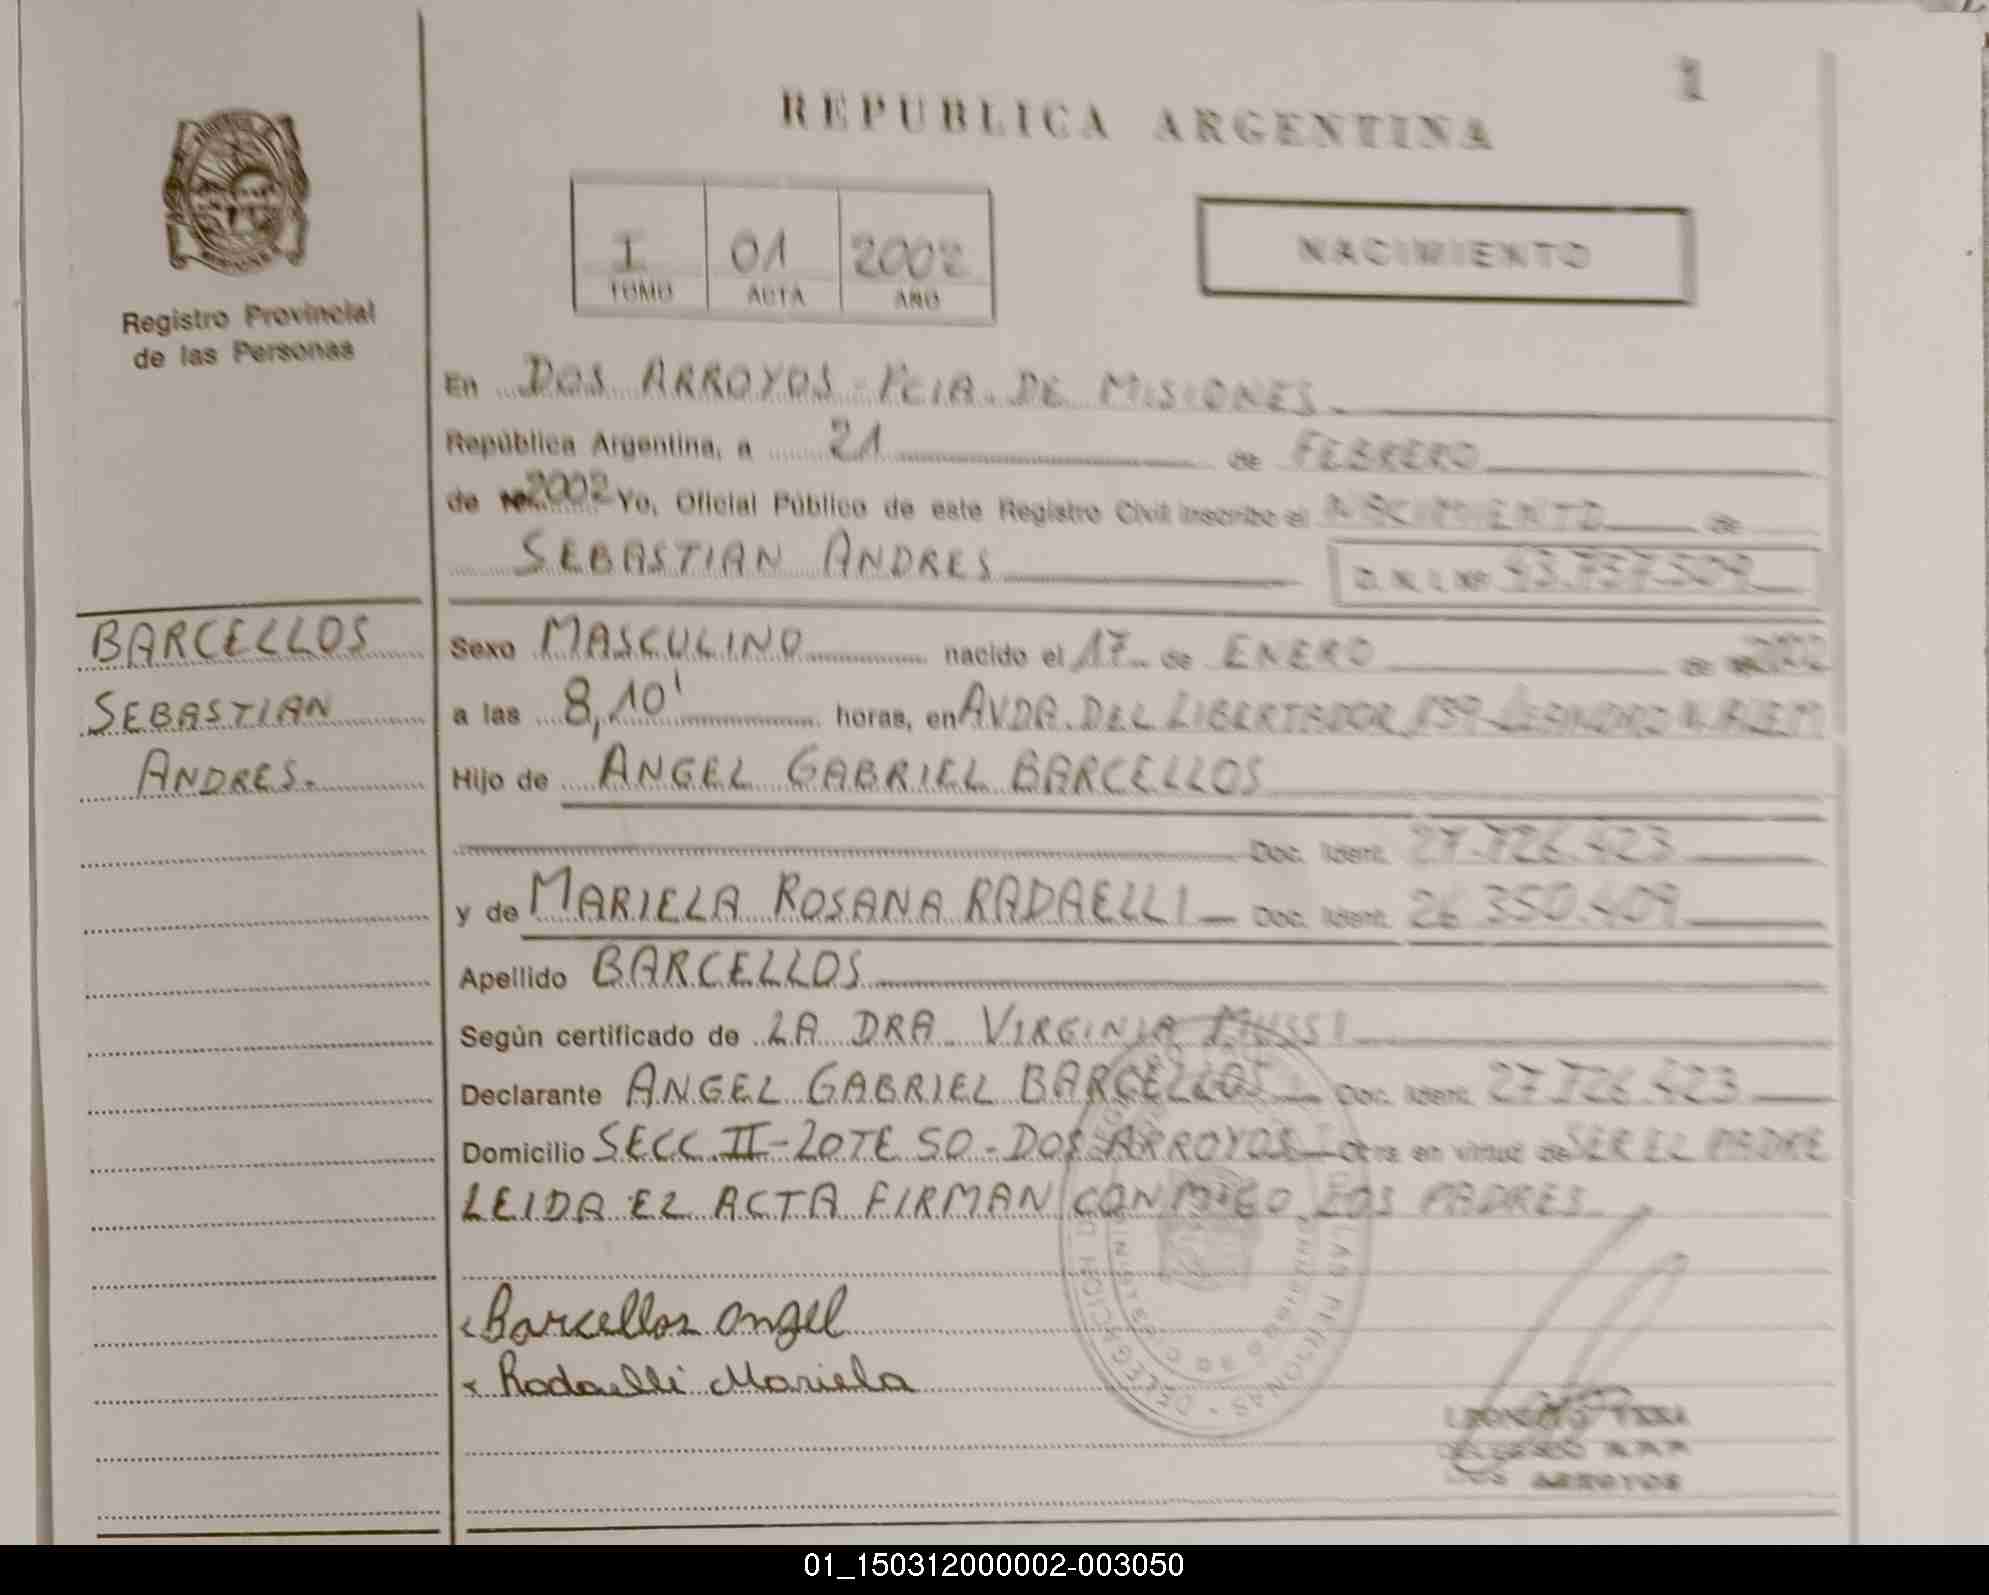 1
REPUBLICA ARGENTINA
I 01 2002
TOMO ACTA AÑO
NACIMIENTO
Registro Provincial
de las Personas
En DOS ARROYOS - PCIA. DE MISIONES
República Argentina, a 21 de FEBRERO
de 2002 Yo, Oficial Público de este Registro Civil inscribo el NACIMIENTO de
SEBASTIAN ANDRES D.N.I. Nº 43.757.509
BARCELLOS
SEBASTIAN
ANDRES.
Sexo MASCULINO nacido el 17 de ENERO de 2002
a las 8,10' horas, en AVDA. DEL LIBERTADOR 139 LEANDRO N. ALEM
Hijo de ANGEL GABRIEL BARCELLOS
Doc. Ident. 27.726.423
y de MARIELA ROSANA RADAELLI Doc. Ident. 26.350.409
Apellido BARCELLOS
Según certificado de LA DRA VIRGINIA MUSSI
Declarante ANGEL GABRIEL BARCELLOS Doc. Ident. 27.726.423
Domicilio SECC. II - LOTE 50 - DOS ARROYOS Obra en virtud de SER EL PADRE
LEIDA EL ACTA FIRMAN CONMIGO LOS PADRES.
Barcellos Angel
Radaelli Mariela
DOS ARROYOS
01_150312000002-003050